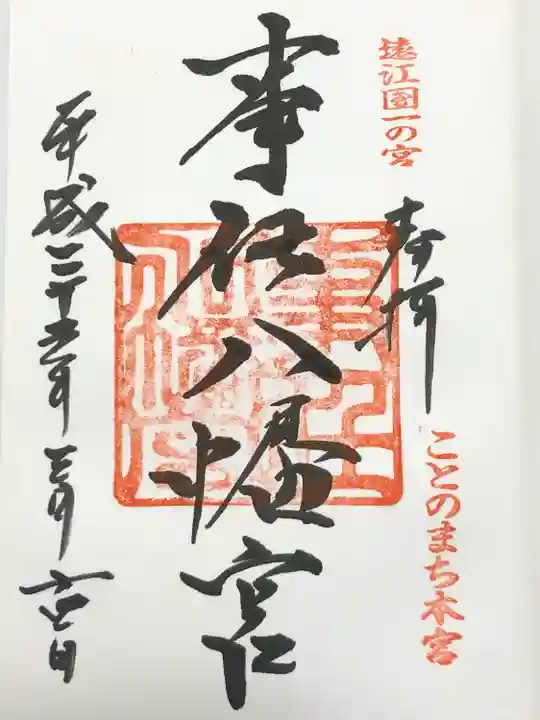 遠江國一の宮
奉拝
ことのまち本宮
事任八幡宮
平成二十五年三月六日